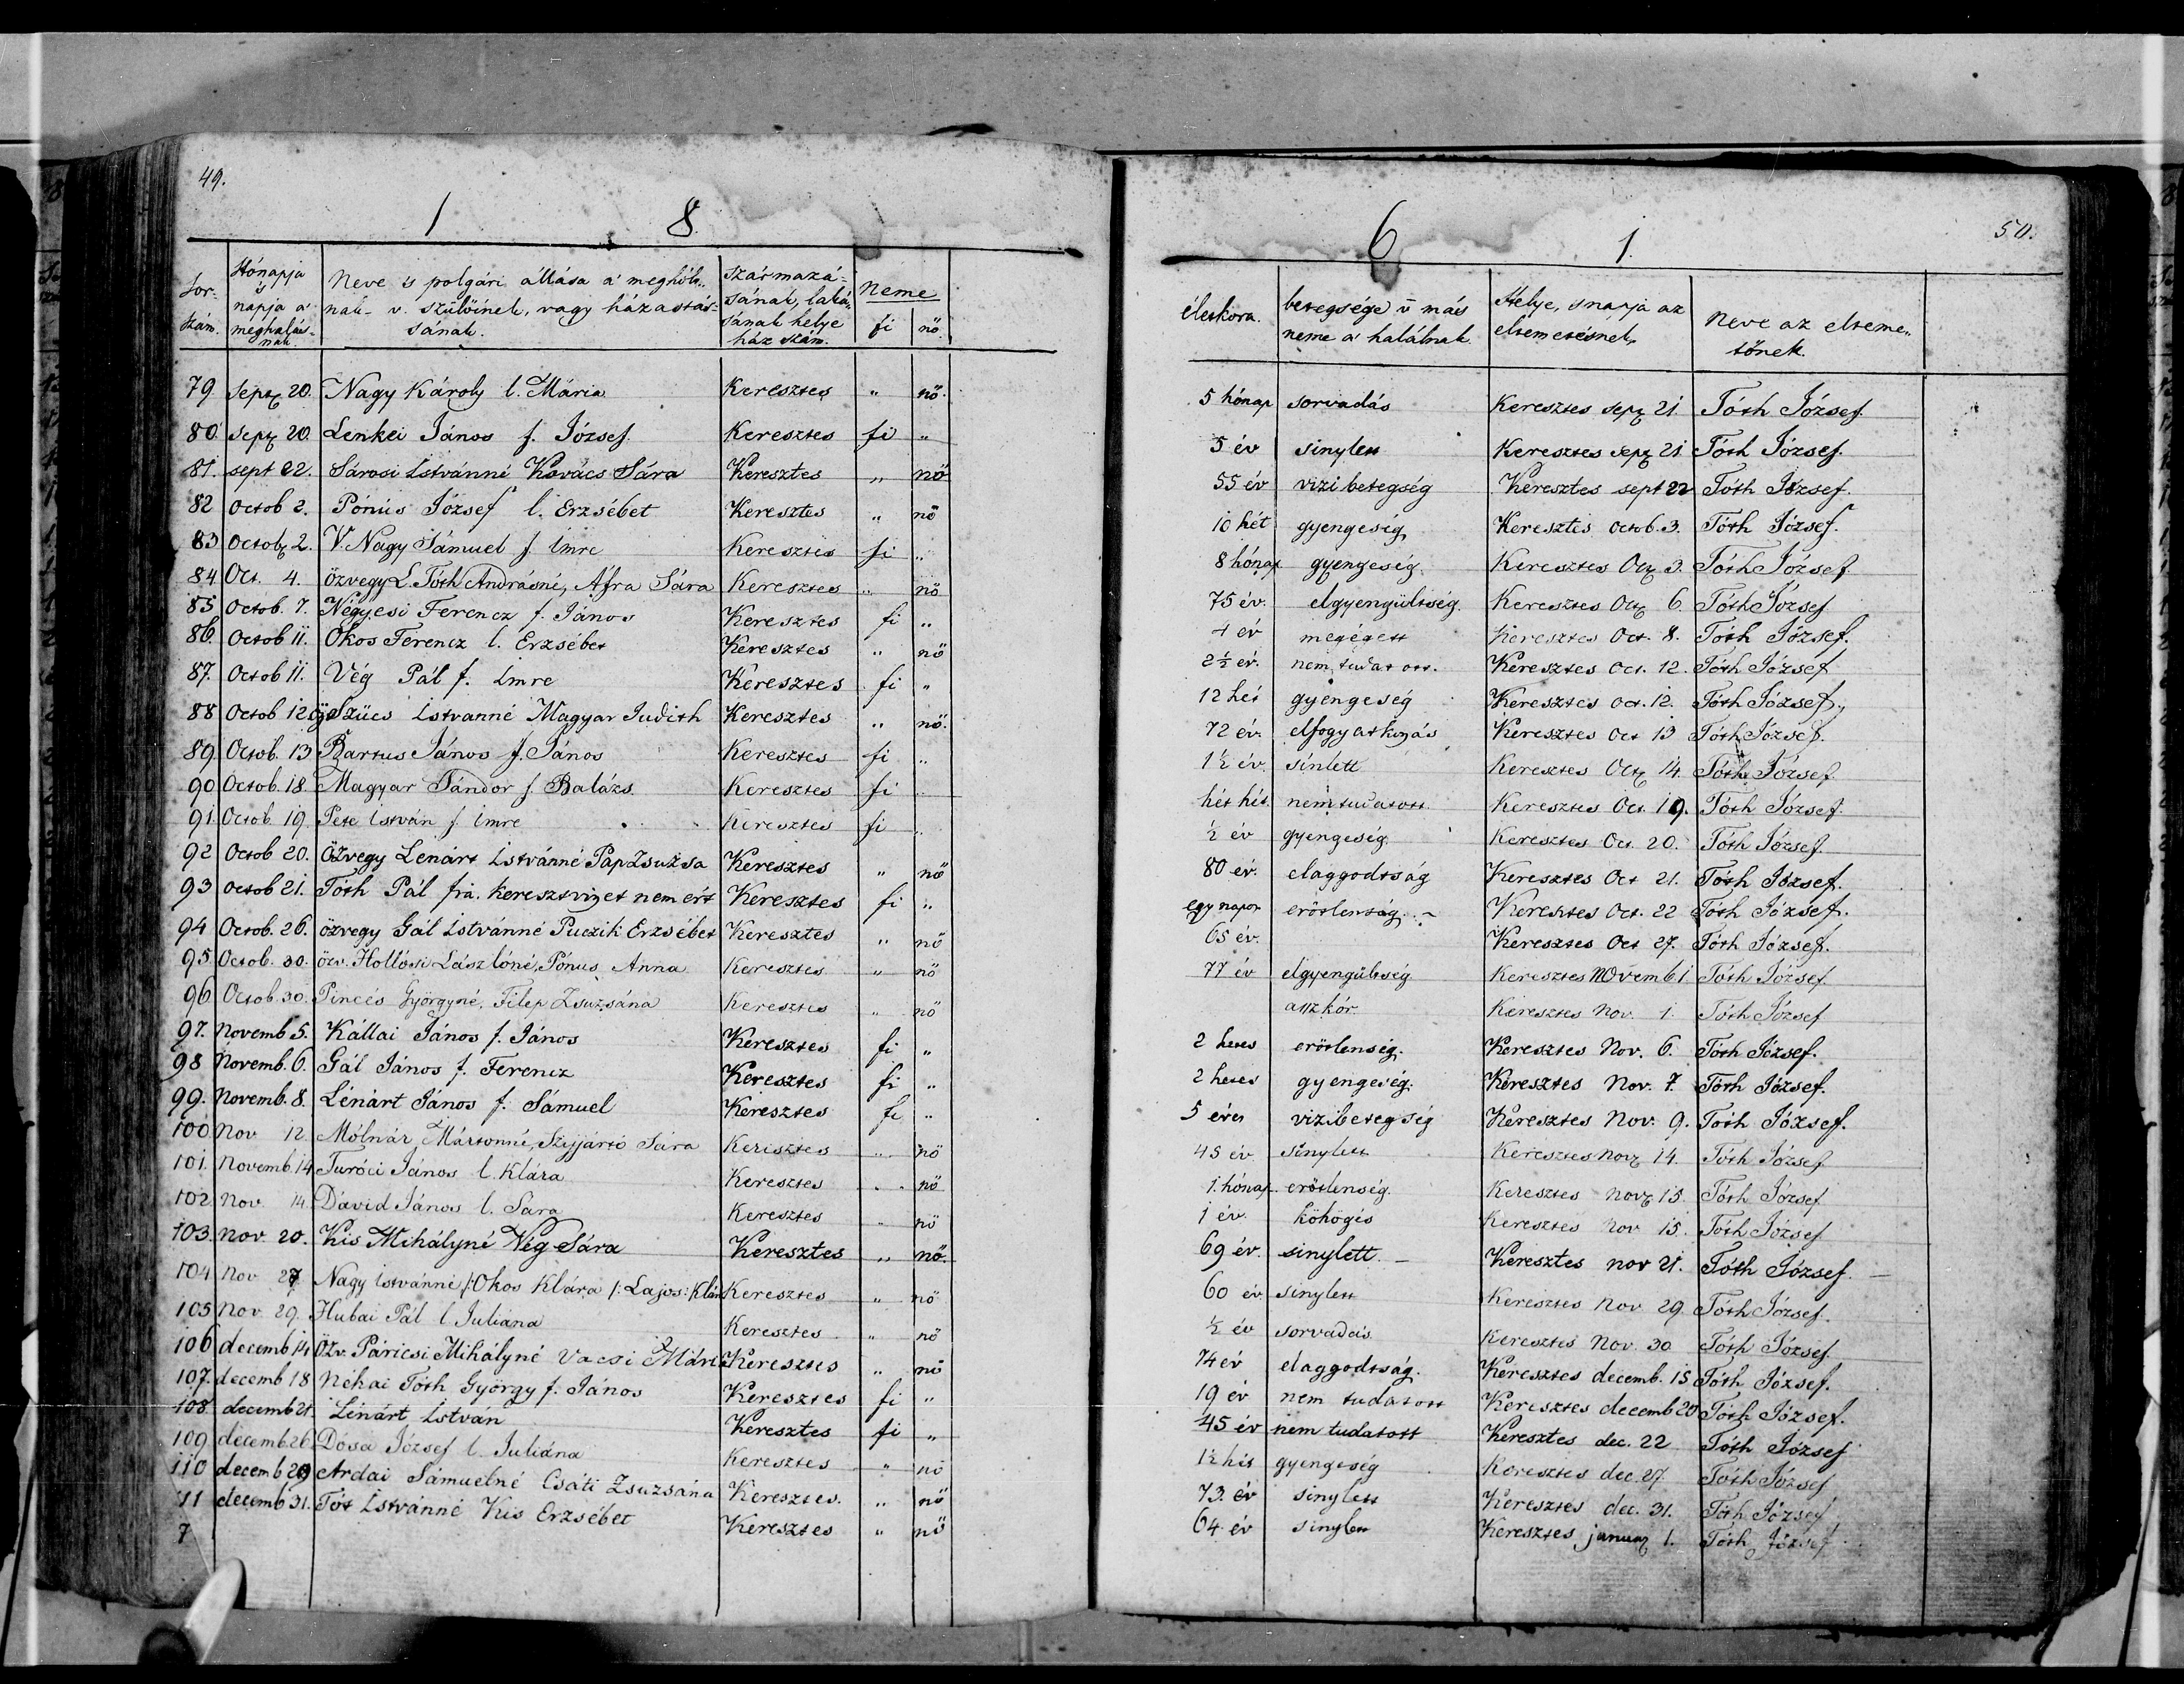 49.
1 8.
6 1.
50.
Sor-szám. Hónapja és napja a' meghalásnak. Neve és polgári állása a' meghóltnak v. szülőinek, vagy házastársának. származásának, lakásának helye ház szám. Neme fi nő. életkora. betegsége v más neme a' halálnak Helye, s napja az eltemetésnek, Neve az eltemetőnek.
79. Sept 20. Nagy Károly l. Mária Keresztes " nő. 5 hónap sorvadás Keresztes sept 21. Tóth József.
80. Sept 20. Lenkei János f. József. Keresztes fi " 5 év sinylett Keresztes sept 21. Tóth József.
81. sept 22. Sárosi Istvánné Kovács Sára Keresztes " nő 55 év vizi betegség Keresztes sept 22 Tóth József.
82 Octob 2. Pónús József l. Erzsébet Keresztes " nő 10 hét gyengeség Keresztes octob. 3. Tóth József.
83 Octob 2. V. Nagy Sámuel f. Imre Keresztes fi " 8 hónap gyengeség. Keresztes Oct 3. Tóth József
84 Oct. 4. özvegy L. Tóth Andrásné, Áfra Sára Keresztes " nő 75 év. elgyengültség. Keresztes Oct 6. Tóth József
85 Octob. 7. Négyesi Ferencz f. János Keresztes fi " 4 év megégett Keresztes Oct. 8. Tóth József.
86. Octob 11. Okos Ferencz l. Erzsébet Keresztes " nő 2½ év. nem tudatott. Keresztes Oct. 12. Tóth József
87. Octob 11. Vég Pál f. Imre Keresztes fi " 12 hét gyengeség Keresztes oct. 12. Tóth József,
88 Octob 12 Szücs Istvanné Magyar Judith Keresztes " nő. 72 év. elfogyatkozás Keresztes Oct 13 Tóth József.
89. Octob. 13 Bartus János f. János Keresztes fi " 1½ év. sinlett Keresztes Oct 14. Tóth József
90 Octob. 18. Magyar Sándor f. Balázs. Keresztes fi " hét hét. nem tudatott Keresztes Oct. 19. Tóth József.
91. Octob 19. Pete István f. Imre Keresztes fi " ½ év gyengeség. Keresztes Oct. 20. Tóth József.
92 Octob 20. Özvegy Lenárt Istvánné Pap Zsuzsa Keresztes " nő 80 év. elaggodtság Keresztes Oct 21. Tóth József.
93 octob 21. Tóth Pál fia. keresztvizet nem ért Keresztes fi " egy napos erőtlenség Keresztes Oct. 22 Tóth József.
94 Octob. 26. özvegy Gál Istvánné Puczik Erzsébet Keresztes " nő 65 év. Keresztes Oct 27. Tóth József.
95 Octob. 30. özv. Hollósi Lászlóné, Pónus Anna Keresztes " nő 77 év elgyengültség Keresztes Novemb 1 Tóth József.
96 Octob. 30. Pincés Györgyné, Filep Zsuzsána Keresztes " nő aszkór Keresztes Nov. 1. Tóth József
97. Novemb 5. Kállai János f. János Keresztes fi " 2 hetes erőtlenség. Keresztes Nov. 6. Tóth József.
98 Novemb. 6. Gál János f. Ferencz Keresztes fi " 2 hetes gyengeség. Keresztes Nov. 7. Tóth József.
99. Novemb. 8. Lénárt János f. Sámuel Keresztes fi " 5 éves vizibetegség Keresztes Nov. 9. Tóth József.
100 Nov 12. Mólnár Mártonné, Szijjártó Sára Keresztes " nő 45 év. sinylett Keresztes Nov 14. Tóth József
101. Novemb. 14 Turóci János l. Klára Keresztes " nő 1. hónap erőtlenség. Keresztes Nov 15. Tóth József
102. Nov. 14. Dávid János l. Sára Keresztes " nő 1 év. köhögés Keresztes Nov 15. Tóth József
103. Nov. 20. Kis Mihályné Vég Sára Keresztes " nő. 69 év. sinylett. Keresztes nov 21. Tóth József.
104 Nov 27 Nagy Istvánné /:Okos Klára /: Lajos: Klára Keresztes " nő 60 év sinylett Keresztes Nov 29. Tóth József.
105 Nov. 29. Hubai Pál l Juliána Keresztes " nő ½ év sorvadás Keresztes Nov. 30 Tóth József
106 decemb 14 Özv. Páricsi Mihályné Vacsi Mári Keresztes " nő 74 év elaggodtság. Keresztes decemb. 15 Tóth József.
107. decemb 18 Néhai Tóth György f. János Keresztes fi " 19 év nem tudatott Keresztes decemb 20 Tóth József.
108. decemb 21. Lénárt István Keresztes fi " 45 év nem tudatott Keresztes dec. 22 Tóth József
109. decemb 26. Dósa József l. Juliána Keresztes " nő 1½ hét gyengeség Keresztes dec. 27 Tóth József
110 decemb 29 Ardai Sámuelné Csáti Zsuzsána Keresztes. " nő 73. év sinylett Keresztes dec. 31. Tóth József
111 decemb 31. Tót Istvánné Kis Erzsébet Keresztes " nő 64 év sinylett Keresztes január 1. Tóth József
7